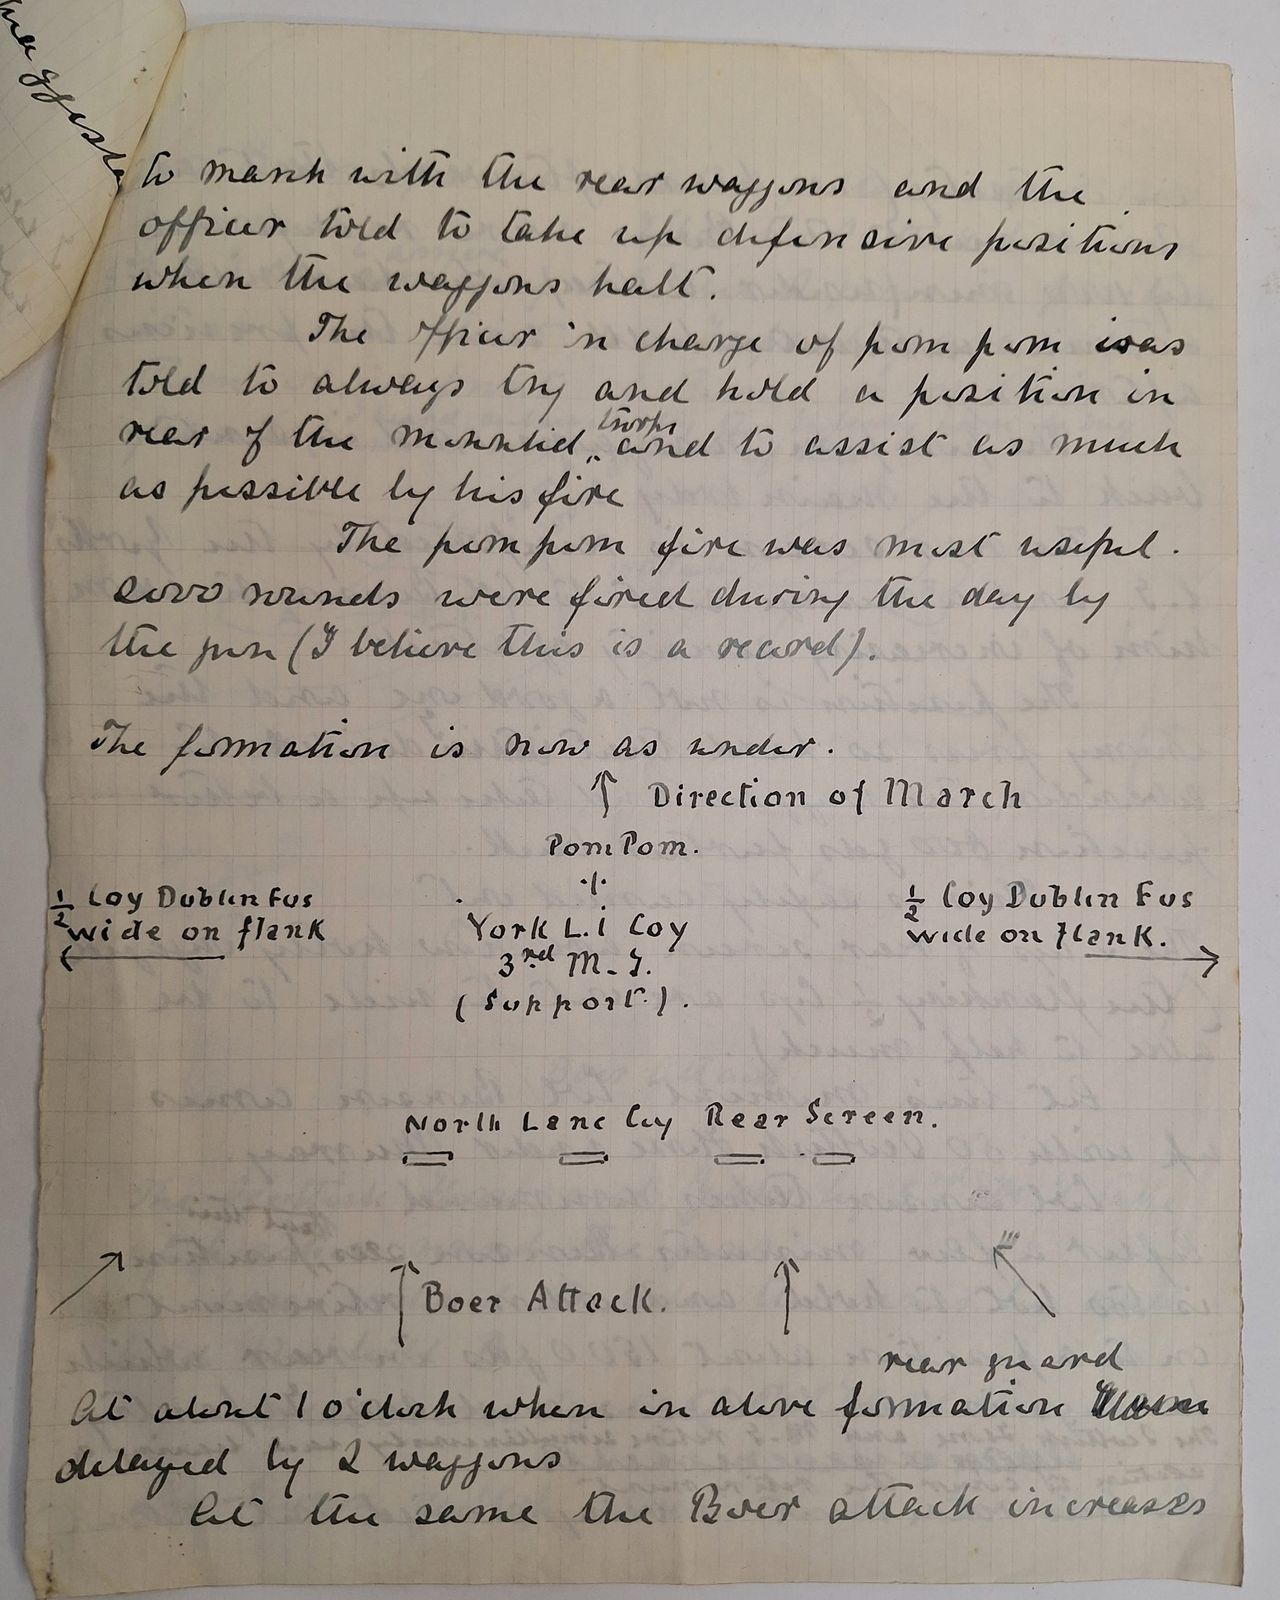 to march with the rear waggons and the
officer told to take up defensive positions
when the waggons halt.
The officer in charge of pom pom was
told to always try and hold a position in
rear of the mounted troops and to assist as much
as possible by his fire
The pom pom fire was most useful.
2000 rounds were fired during the day by
the gun (I believe this is a record).
The formation is now as under.
Direction of March
Pom Pom.
½ Coy Dublin Fus
wide on flank
York L.i Coy
3rd M.I.
(Support.).
½ Coy Dublin Fus
wide on flank.
North Lanc Coy Rear Screen.
Boer Attack.
rear guard
At about 1 o'clock when in above formation
delayed by 2 waggons
At the same the Boer attack increases